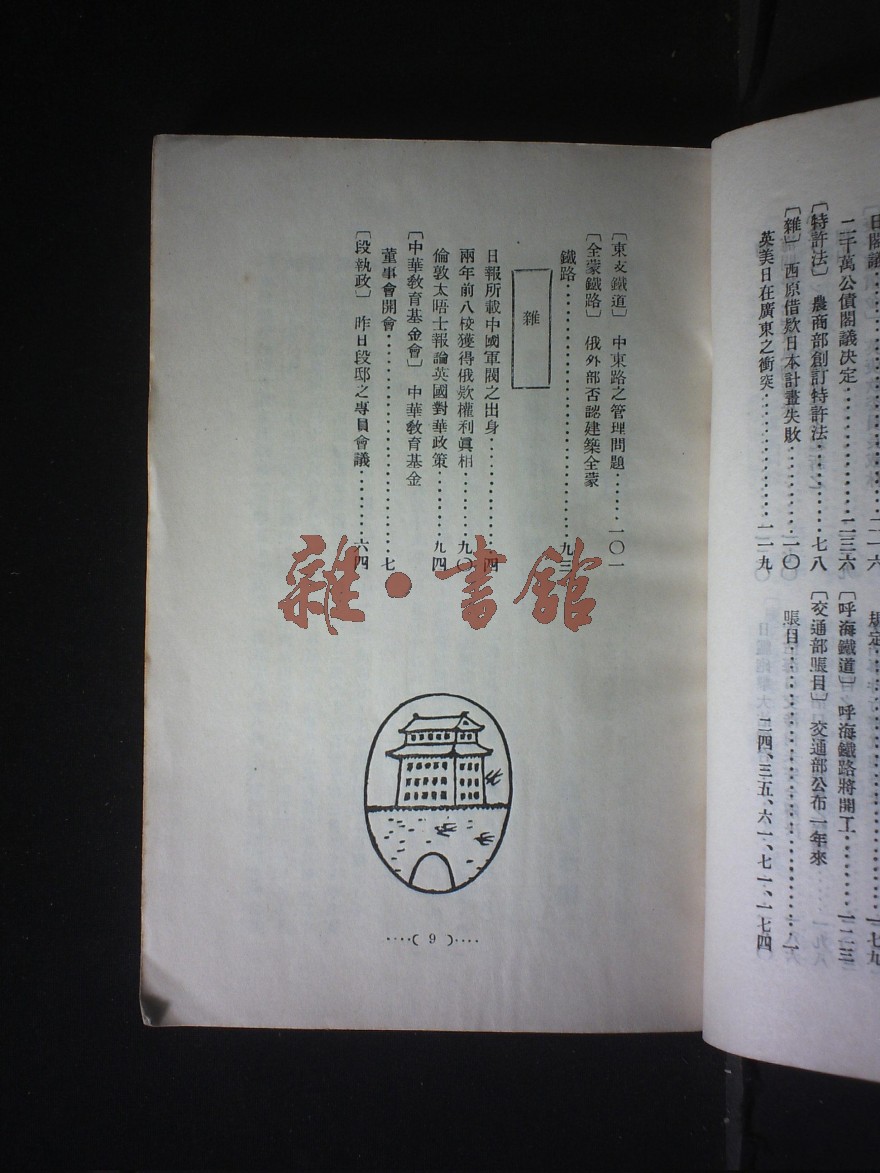 日閣議……………………二一六
二千萬公債閣議决定…………二三六
〔特許法〕　農商部創訂特許法………七八
〔雜〕　西原借欵日本計畫失敗………一〇
英美日在廣東之衝突…………一一九
規定……………………一七九
〔呼海鐵道〕　呼海鐵路將開工………一二三
〔交通部賬目〕　交通部公布一年來
賬目……………………一一
二四、三五、六一、七一、一七四
〔東支鐵道〕　中東路之管理問題……一〇一
〔全蒙鐵路〕　俄外部否認建築全蒙
鐵路……………………九三
雜
日報所載中國軍閥之出身…………四
兩年前八校獲得俄欵權利眞相………九〇
倫敦太晤士報論英國對華政策………九四
〔中華敎育基金會〕　中華敎育基金
董事會開會…………………七
〔段執政〕　昨日段邸之專員會議………六四
雜·書館
····( 9 )····